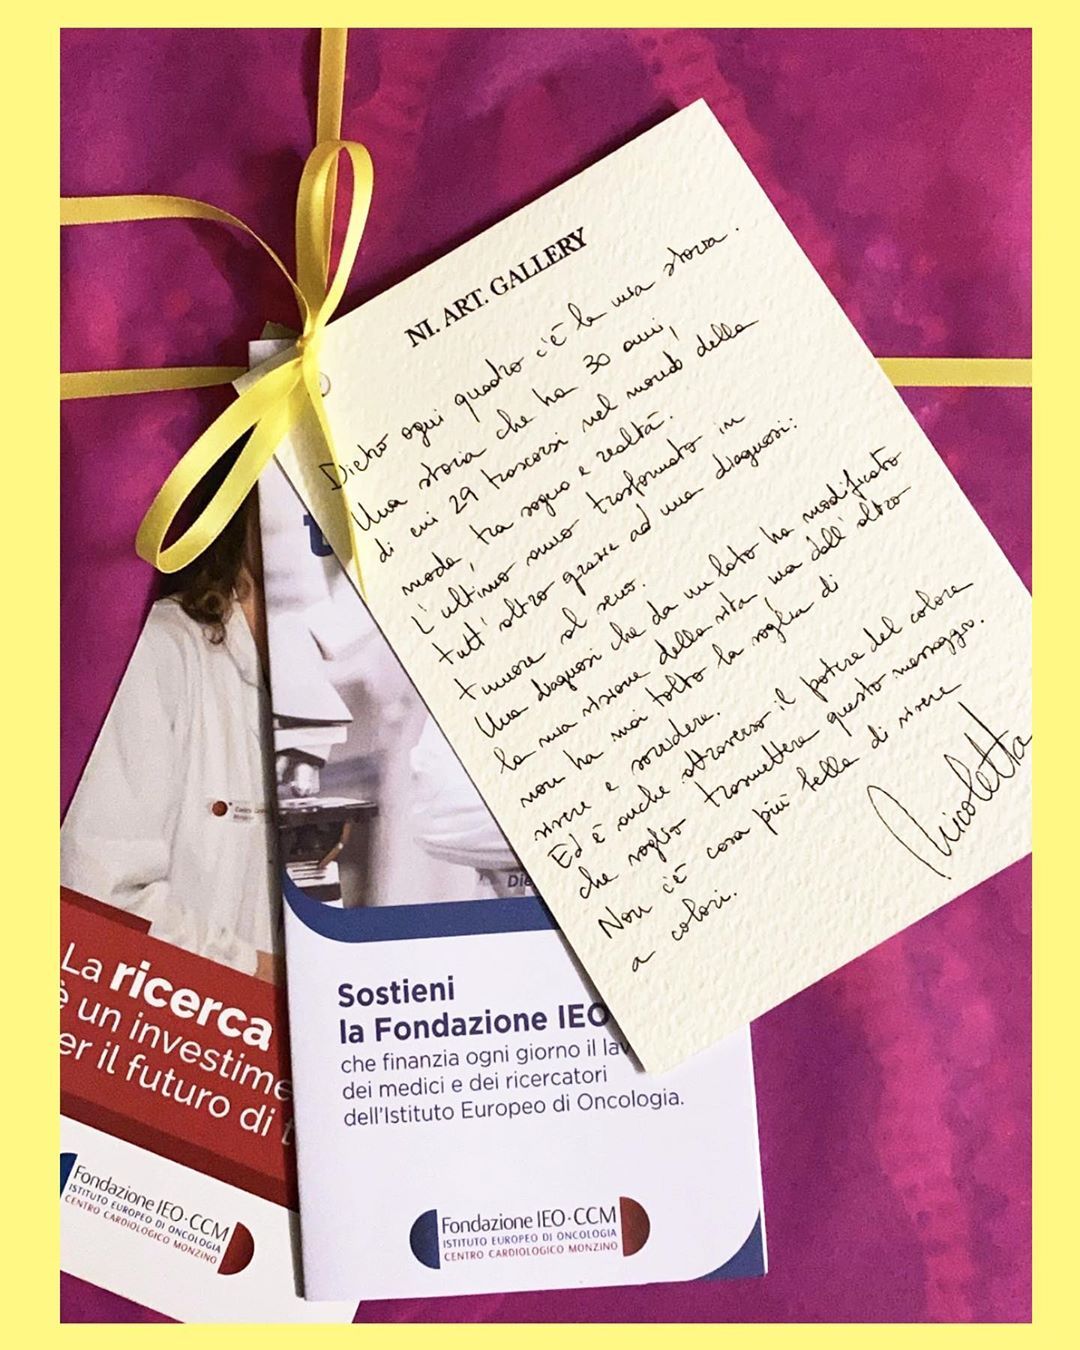 NI. ART. GALLERY
Dietro ogni quadro c'è la mia storia.
Una storia che ha 30 anni,
di cui 29 trascorsi nel mondo della
moda, tra sogno e realtà.
L'ultimo anno trasformato in
tutt'altro grazie ad una diagnosi:
tumore al seno.
Una diagnosi che da un lato ha modificato
la mia visione della vita ma dall'altro
non ha mai tolto la voglia di
vivere e sorridere.
Ed è anche attraverso il potere del colore
che voglio trasmettere questo messaggio.
Non c'è cosa più bella di vivere
a colori.
Nicoletta
Sostieni
la Fondazione IEO
che finanzia ogni giorno il lav
dei medici e dei ricercatori
dell'Istituto Europeo di Oncologia.
Fondazione IEO·CCM
ISTITUTO EUROPEO DI ONCOLOGIA
CENTRO CARDIOLOGICO MONZINO
La ricerca
è un investime
er il futuro di t
Fondazione IEO·CCM
ISTITUTO EUROPEO DI ONCOLOGIA
CENTRO CARDIOLOGICO MONZINO